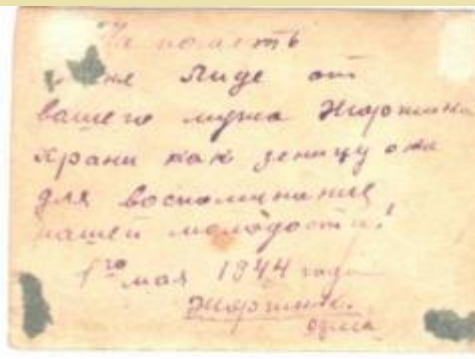 На память
Лиде от
вашего мужа Жоржика
храни как зеницу ока
для воспоминание
нашей молодости!
1го мая 1944 года
Жоржик.